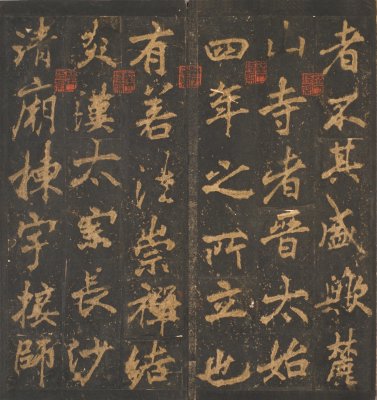 者不其盛歟麓
山寺者晉太始
四年之所立也
有若法崇禪結
炎漢太宗長沙
清廟棟宇接師